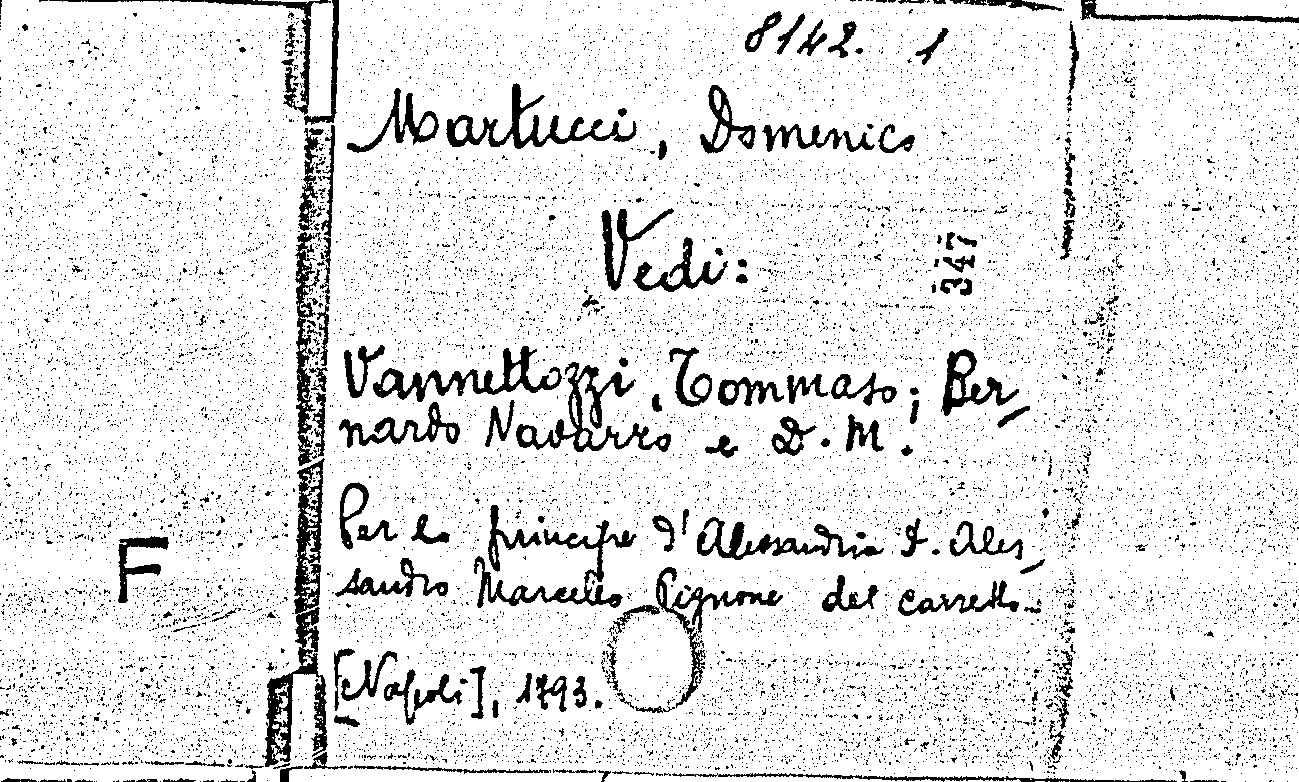 8142. 1
Martucci, Domenico
Vedi:
347
Vannettozzi, Tommaso; Ber-
nardo Navarro e D. M.
Per lo principe d'Alessandria D. Ales-
sandro Marcello Pignone del Carretto..
F
[Napoli], 1793.